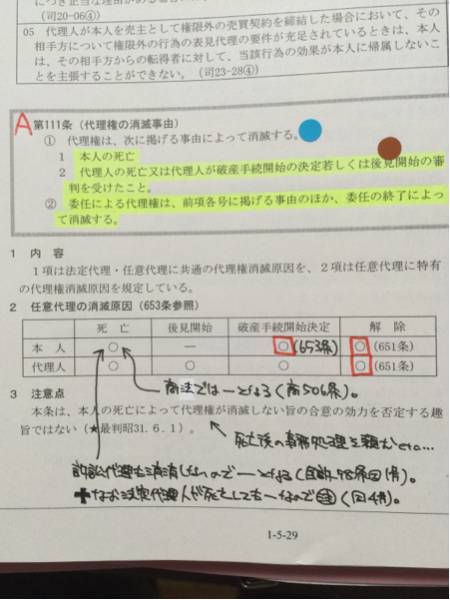 につき正当な理由がある
(司20-06④)
05 代理人が本人を売主として権限外の売買契約を締結した場合において、その
相手方について権限外の行為の表見代理の要件が充足されているときは、本人
は、その相手方からの転得者に対して、当該行為の効果が本人に帰属しないこ
とを主張することができない。(司23-28④)
A
第111条(代理権の消滅事由)
① 代理権は、次に掲げる事由によって消滅する。
1 本人の死亡
2 代理人の死亡又は代理人が破産手続開始の決定若しくは後見開始の審
判を受けたこと。
② 委任による代理権は、前項各号に掲げる事由のほか、委任の終了によっ
て消滅する。
1 内 容
1項は法定代理・任意代理に共通の代理権消滅原因を、2項は任意代理に特有
の代理権消滅原因を規定している。
2 任意代理の消滅原因(653条参照)
死 亡 後見開始 破産手続開始決定 解 除
本 人 ○ ― ○(653条) ○(651条)
代理人 ○ ○ ○ ○(651条)
商法では―となる(商506条)。
3 注意点
本条は、本人の死亡によって代理権が消滅しない旨の合意の効力を否定する趣
旨ではない(★最判昭31.6.1)。
死亡後の事務処理を頼むetc…
訴訟代理も消滅しないので―となる
なお法定代理人が死亡しても―なので
1-5-29